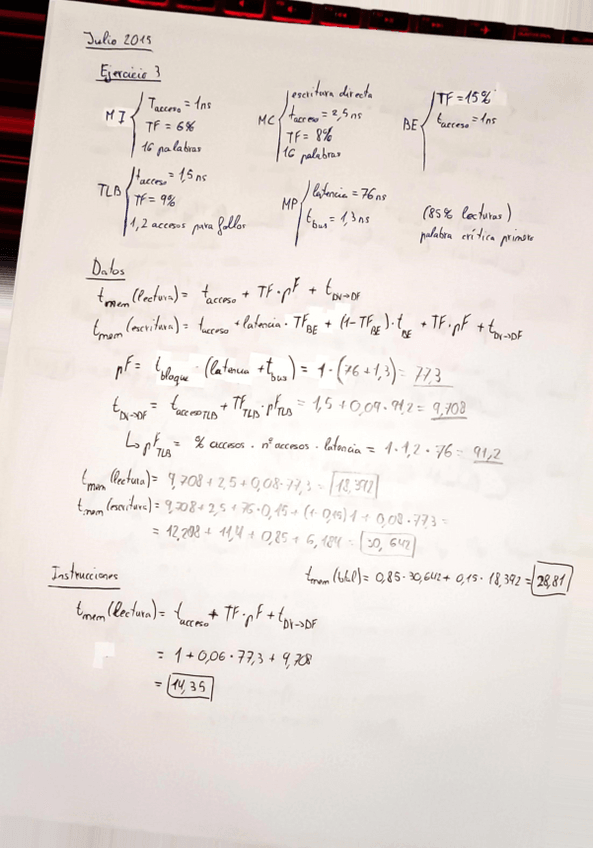 Julio 2015
Ejercicio 3
MI { Tacceso = 1ns
TF = 6%
16 palabras
MC { escritura directa
tacceso = 2,5ns
TF = 8%
16 palabras
BE { TF = 15%
tacceso = 1ns
TLB { tacceso = 1,5ns
TF = 9%
1,2 accesos para fallos
MP { latencia = 76ns
tbus = 1,3ns
(85% lecturas)
palabra crítica primero
Datos
tmem (lectura) = tacceso + TF · pF + tDV→DF
tmem (escritura) = tacceso + latencia · TFBE + (1-TFBE) · tBE + TF · pF + tDV→DF
pF = tbloque · (latencia + tbus) = 1 · (76 + 1,3) = 77,3
tDV→DF = taccesoTLB + TFTLB · pFTLB = 1,5 + 0,09 · 91,2 = 9,708
↳ pFTLB = % accesos · nº accesos · latencia = 1 · 1,2 · 76 = 91,2
tmem (lectura) = 9,708 + 2,5 + 0,08 · 77,3 = 18,392
tmem (escritura) = 9,708 + 2,5 + 76 · 0,15 + (1-0,15) 1 + 0,08 · 77,3 =
= 12,208 + 11,4 + 0,85 + 6,184 = 30,642
tmem (total) = 0,85 · 30,642 + 0,15 · 18,392 = 28,81
Instrucciones
tmem (lectura) = tacceso + TF · pF + tDV→DF
= 1 + 0,06 · 77,3 + 9,708
= 14,35